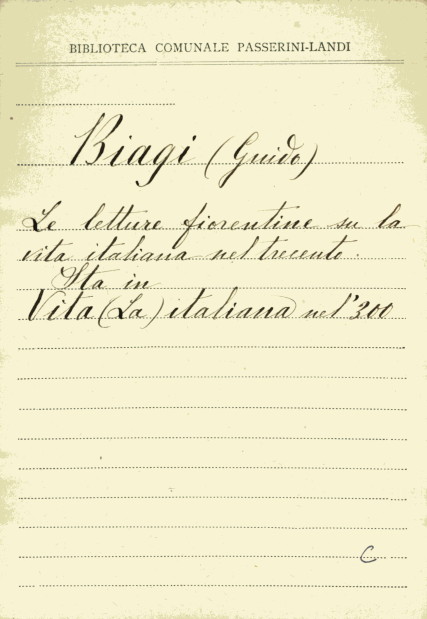 BIBLIOTECA COMUNALE PASSERINI-LANDI
Biagi (Guido)
Le letture fiorentine su la
vita italiana nel trecento.
Sta in
Vita (La) italiana nel '300
C